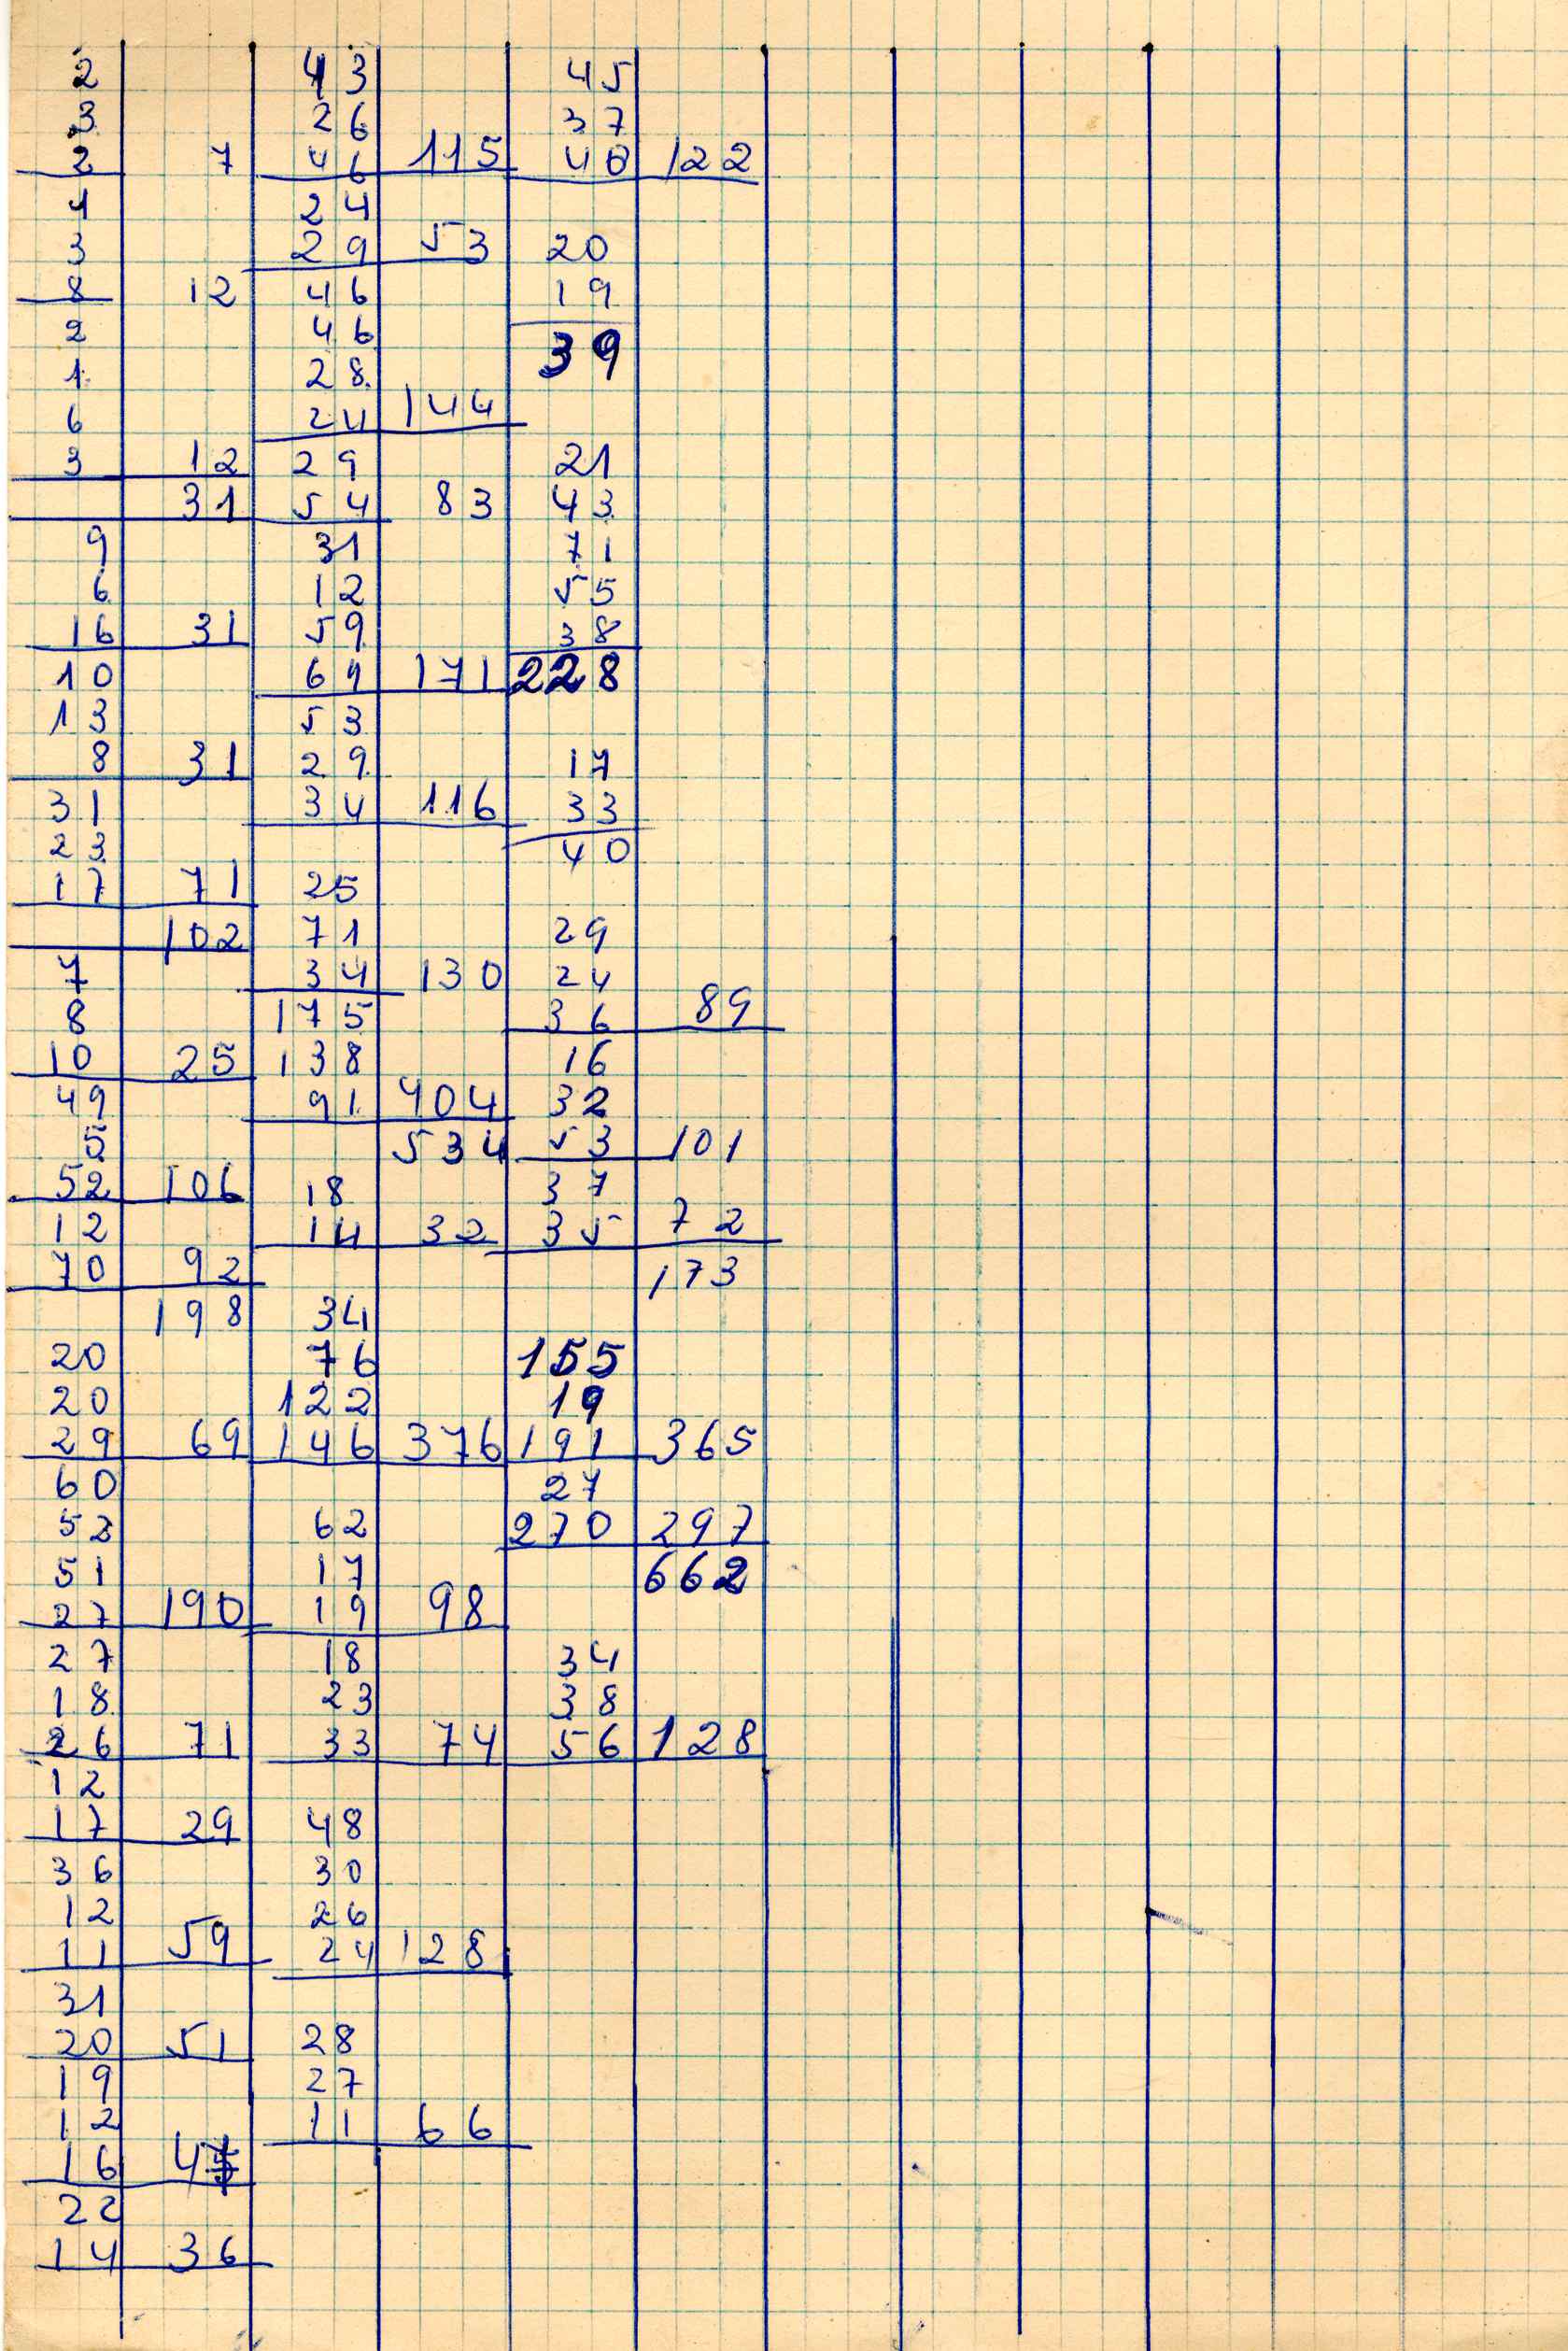 2 43 45
3 26 37
2 7 46 115 40 122
1 24
3 29 53 20
8 12 46 19
2 46 39
1 28
6 24 144
3 12 29 21
31 54 83 43
9 31 71
6 12 55
16 31 59 38
10 69 171 228
13 53
8 31 29 17
31 34 116 33
23 40
17 71 25
102 71 29
7 34 130 24
8 175 36 89
10 25 138 16
49 91 404 32
5 534 53 101
52 106 18 37
12 14 32 35 72
70 92 173
198 34
20 76 155
20 122 19
29 69 146 376 191 365
60 27
52 62 270 297
51 17 662
27 190 19 98
27 18 34
18 23 38
26 71 33 74 56 128
12
17 29 48
36 30
12 26
11 59 24 128
31
20 51 28
19 27
12 11 66
16 47
22
14 36